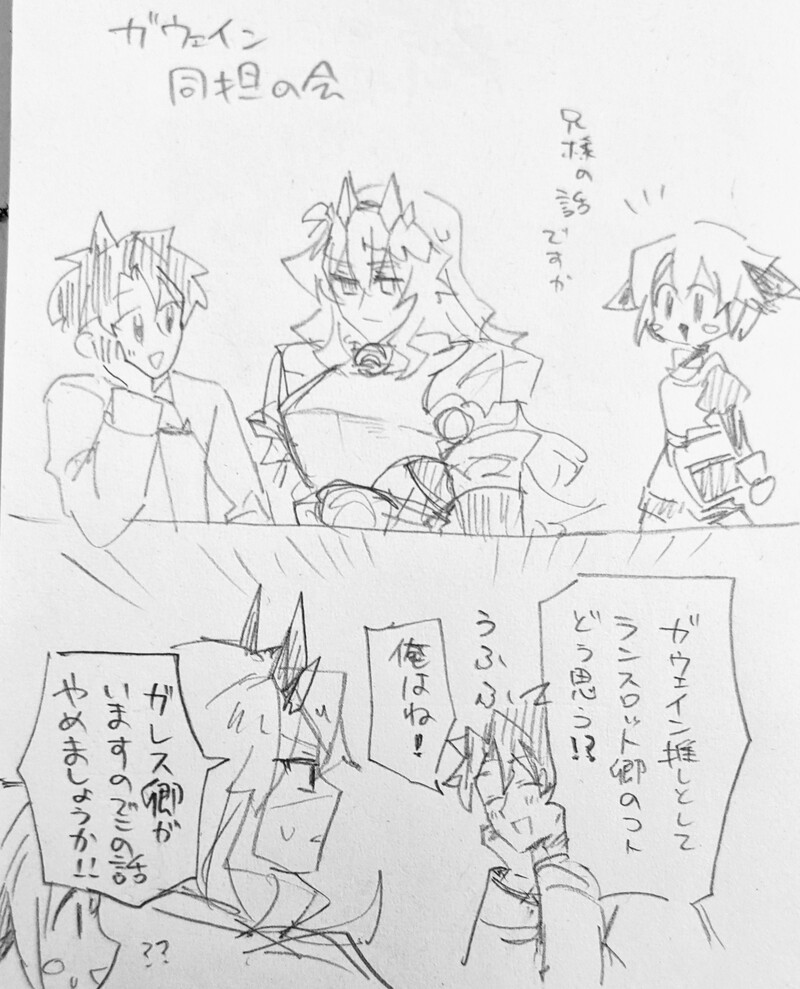 ガウェイン
同担の会
兄様の話ですか
ガウェイン推しとして
ランスロット卿のコト
どう思う!?
うふふ
俺はね!
ガレス卿が
いますのでこの話
やめましょうか!!
??